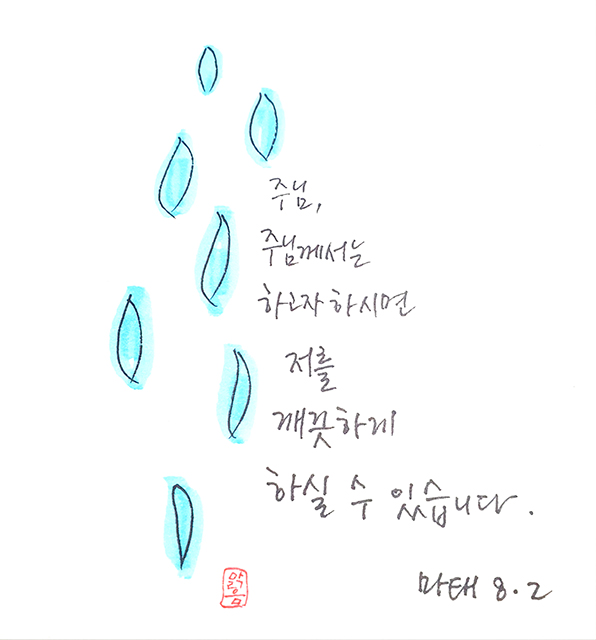 주님,
주님께서는
하고자 하시면
저를
깨끗하게
하실 수 있습니다.
마태 8.2